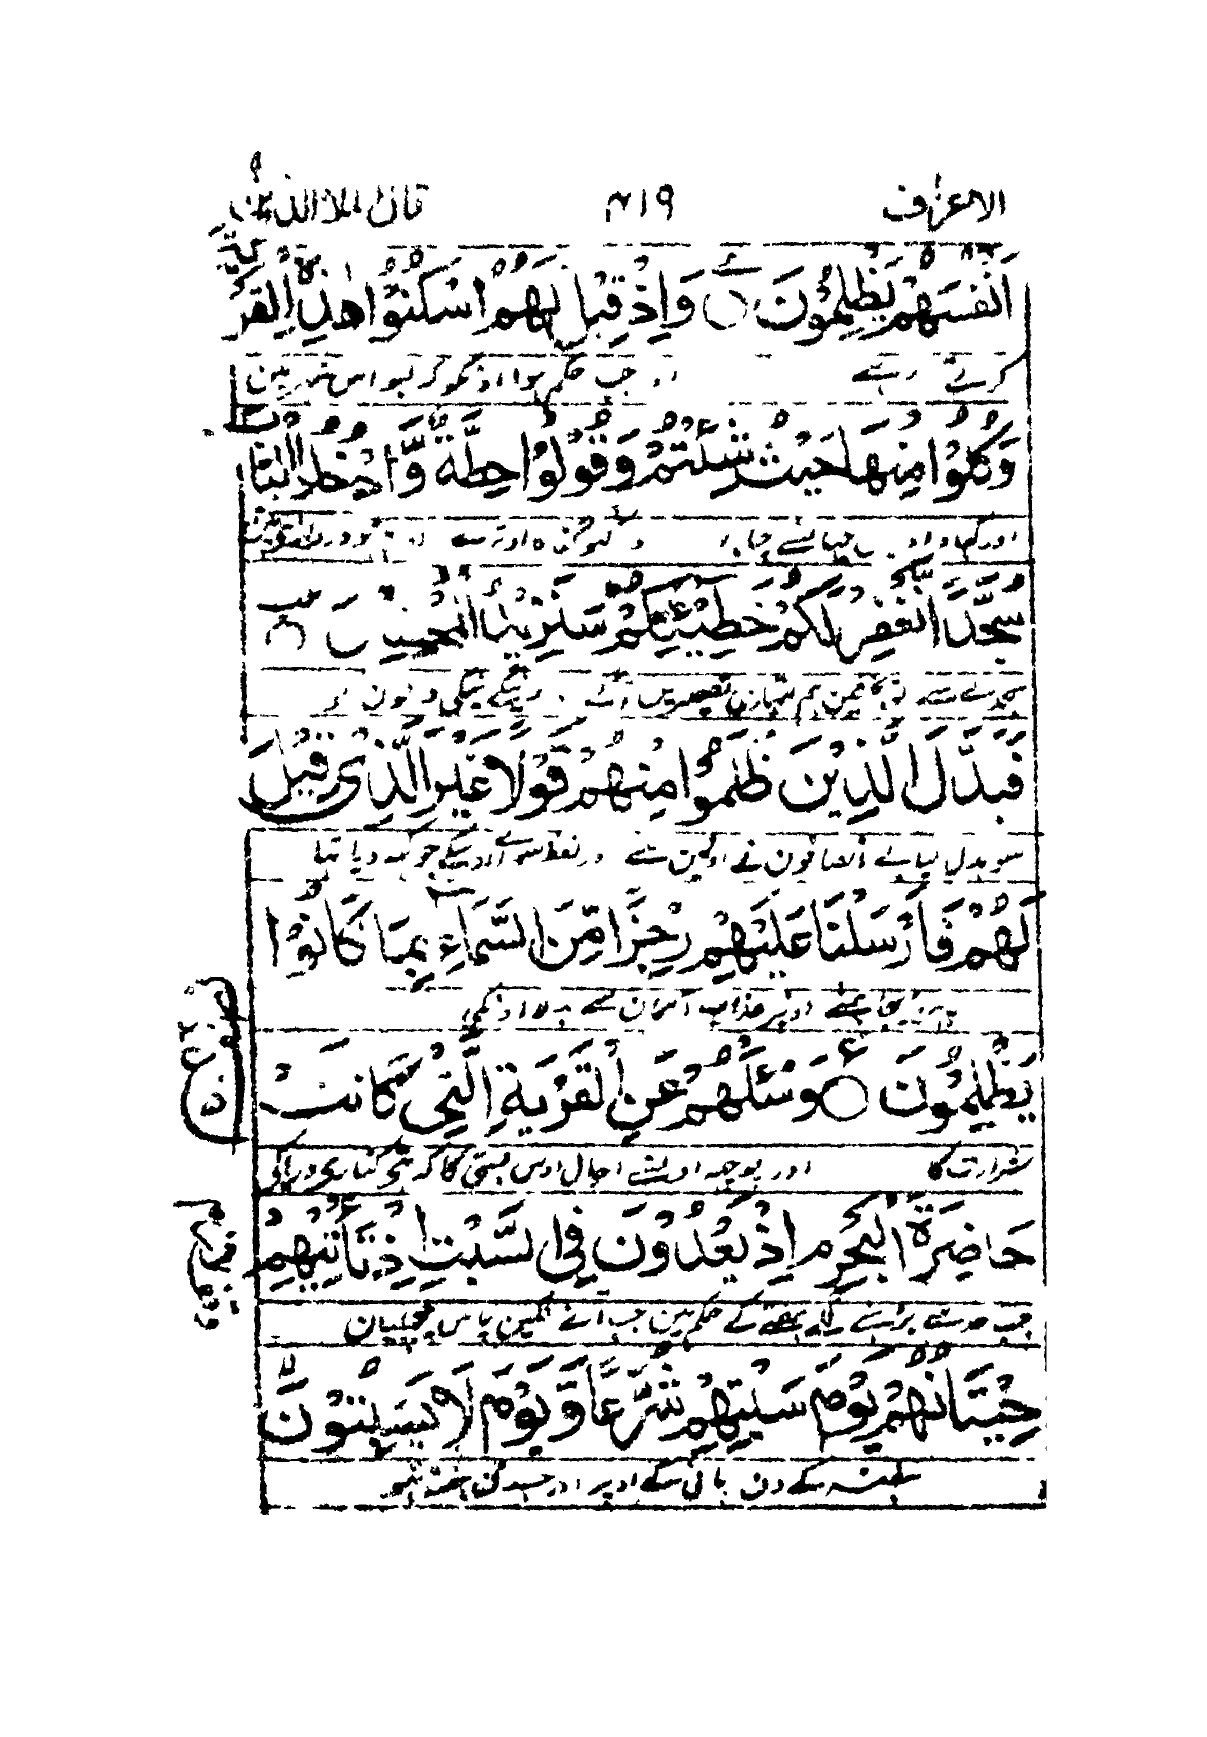 الاعراف ٢١٩ قال الملا الذين ٩
اَنْفُسَهُمْ يَظْلِمُوْنَ ○ وَاِذْ قِيْلَ لَهُمُ اسْكُنُوْا هٰذِهِ الْقَرْيَةَ
کرتے رہے اور جب حکم ہوا اونکو کہ بسو اس شہر مین
وَكُلُوْا مِنْهَا حَيْثُ شِئْتُمْ وَقُوْلُوْا حِطَّةٌ وَّادْخُلُوا الْبَابَ
اور کھاؤ اوس جہان سے چاہو اور کہو گناہ اوترے
سُجَّدًا نَّغْفِرْ لَكُمْ خَطِيْٓـٰٔتِكُمْ سَنَزِيْدُ الْمُحْسِنِيْنَ ○
سجدے سے تو بخشین ہم تمہاری تقصیرین آگے دینگے نیکی والون کو
فَبَدَّلَ الَّذِيْنَ ظَلَمُوْا مِنْهُمْ قَوْلًا غَيْرَ الَّذِيْ قِيْلَ
سو بدل لیا بے انصافون نے اونمین سے اور لفظ سوائے اوسکے جو کہہ دیا تھا
لَهُمْ فَاَرْسَلْنَا عَلَيْهِمْ رِجْزًا مِّنَ السَّمَآءِ بِمَا كَانُوْا
پھر بھیجا ہمنے اونپر عذاب آسمان سے بدلا اونکی
يَظْلِمُوْنَ ○ وَسْـَٔلْهُمْ عَنِ الْقَرْيَةِ الَّتِيْ كَانَتْ
شرارت کا اور پوچھ اونسے احوال اوس بستی کا کہ تھی کنارے دریا کی
حَاضِرَةَ الْبَحْرِ م اِذْ يَعْدُوْنَ فِي السَّبْتِ اِذْ تَاْتِيْهِمْ
جب حد سے بڑھنے لگے ہفتے کے حکم مین جب آنے لگین پاس مچھلیان
حِيْتَانُهُمْ يَوْمَ سَبْتِهِمْ شُرَّعًا وَّيَوْمَ لَا يَسْبِتُوْنَ
ہفتہ کے دن پانی کے اوپر اور جسدن ہفتہ نہو